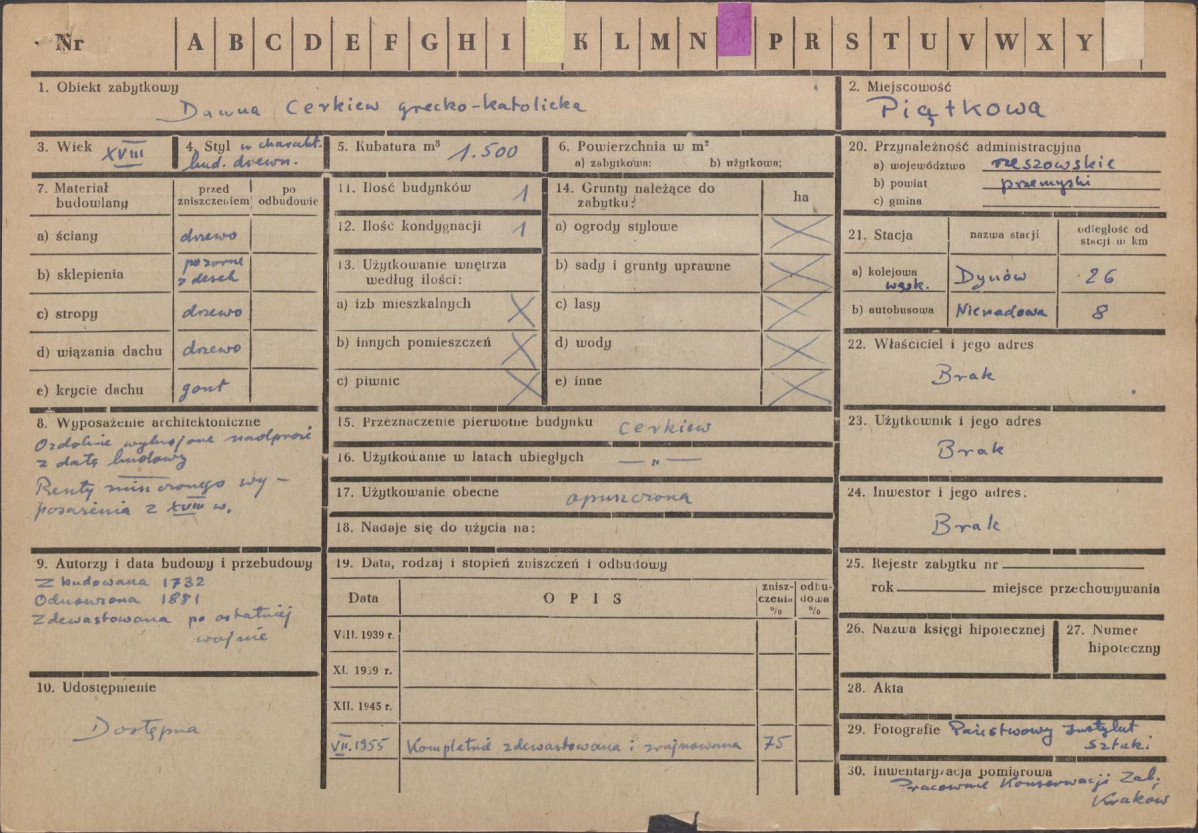 Nr A B C D E F G H I K L M N P R S T U V W X Y
1. Obiekt zabytkowy
Dawna Cerkiew grecko-katolicka
2. Miejscowość
Piątkowa
3. Wiek XVIII
4. Styl w charakt.
bud. drewn.
5. Kubatura m³ 1.500
6. Powierzchnia w m²
a) zabytkowa: b) użytkowa:
7. Materiał budowlany
przed zniszczeniem
po odbudowie
a) ściany drzewo
b) sklepienia pozorne
z desek
c) stropy drzewo
d) wiązania dachu drzewo
e) krycie dachu gont
8. Wyposażenie architektoniczne
Ozdobnie wykrojone nadproże
z datą budowy
Reszty zniszczonego wy-
posażenia z XVIII w.
9. Autorzy i data budowy i przebudowy
Zbudowana 1732
Odnowiona 1881
Zdewastowana po ostatniej
wojnie
10. Udostępnienie
Dostępna
11. Ilość budynków 1
12. Ilość kondygnacji 1
13. Użytkowanie wnętrza
według ilości:
a) izb mieszkalnych
b) innych pomieszczeń
c) piwnic
14. Grunty należące do
zabytku:
ha
a) ogrody stylowe
b) sady i grunty uprawne
c) lasy
d) wody
e) inne
15. Przeznaczenie pierwotne budynku cerkiew
16. Użytkowanie w latach ubiegłych — „ —
17. Użytkowanie obecne opuszczona
18. Nadaje się do użycia na:
19. Data, rodzaj i stopień zniszczeń i odbudowy
Data OPIS
znisz-
czenia
%
odbu-
dowa
%
VIII. 1939 r.
XI. 1939 r.
XII. 1945 r.
VII.1955 Kompletnie zdewastowana i zrujnowana 75
20. Przynależność administracyjna
a) województwo rzeszowskie
b) powiat przemyski
c) gmina
21. Stacja nazwa stacji odległość od
stacji w km
a) kolejowa
wąsk. Dynów 26
b) autobusowa Nienadowa 8
22. Właściciel i jego adres
Brak
23. Użytkownik i jego adres
Brak
24. Inwestor i jego adres:
Brak
25. Rejestr zabytku nr
rok miejsce przechowywania
26. Nazwa księgi hipotecznej
27. Numer
hipoteczny
28. Akta
29. Fotografie Państwowy Instytut
Sztuki
30. Inwentaryzacja pomiarowa
Pracownie Konserwacji Zab.
Kraków